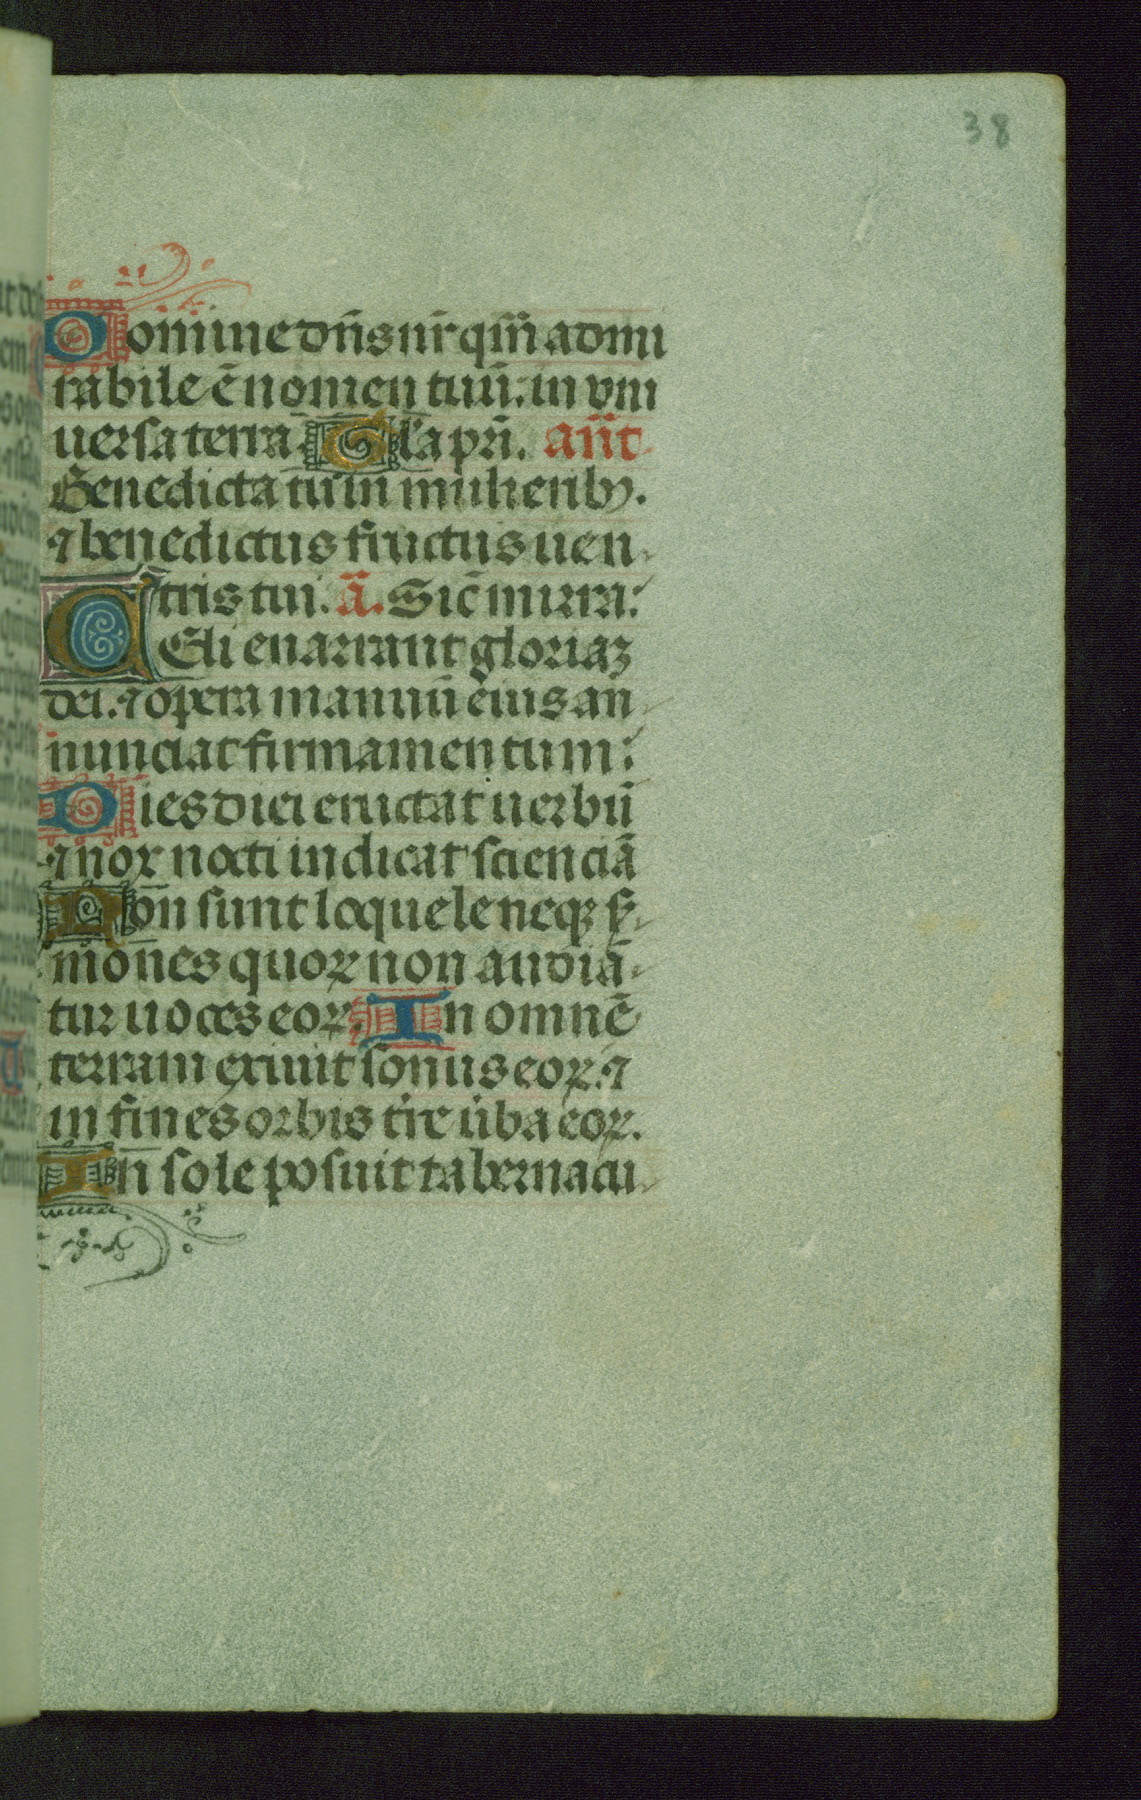 38
Domine dn̄s nr̄ qm̄ admi
rabile ē nomen tuū: in vni
uersa terra. Gl'a pr̄i. an̄t
Benedicta tu in mulierib9.
⁊ benedictus fructus uen
tris tui. ā. Sic̄ mirra:
Celi enarrant gloriaꝫ
dei. ⁊ opera manuū eius an
nunciat firmamentum:
Dies diei eructat uerbū
⁊ nox nocti indicat scienciā
Non sunt loquele neqꝫ s̄
mones quoꝝ non audiā
tur uoces eoꝝ. In omnē
terram exiuit sonus eoꝝ. ⁊
in fines orbis tr̄e ūba eoꝝ.
In sole posuit tabernacu